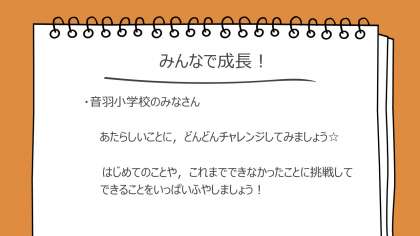 みんなで成長！
・音羽小学校のみなさん
あたらしいことに，どんどんチャレンジしてみましょう☆
はじめてのことや，これまでできなかったことに挑戦して
できることをいっぱいふやしましょう！